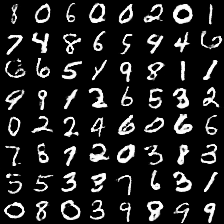 8 0 6 0 0 2 0 1
7 4 8 6 5 9 4 6
6 6 5 9 8 1 1
9 9 1 2 6 5 3 2
0 2 2 4 6 0 6 6
7 8 7 2 0 3 8 3
5 5 3 3 7 6 3 1
0 8 0 3 9 8 9 9